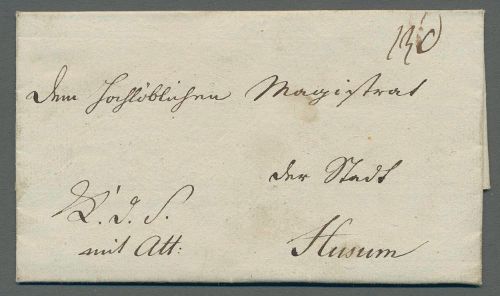 Dem Hochlöblichen Magistrat
der Stadt
K. d. S.
mit Att:
Husum